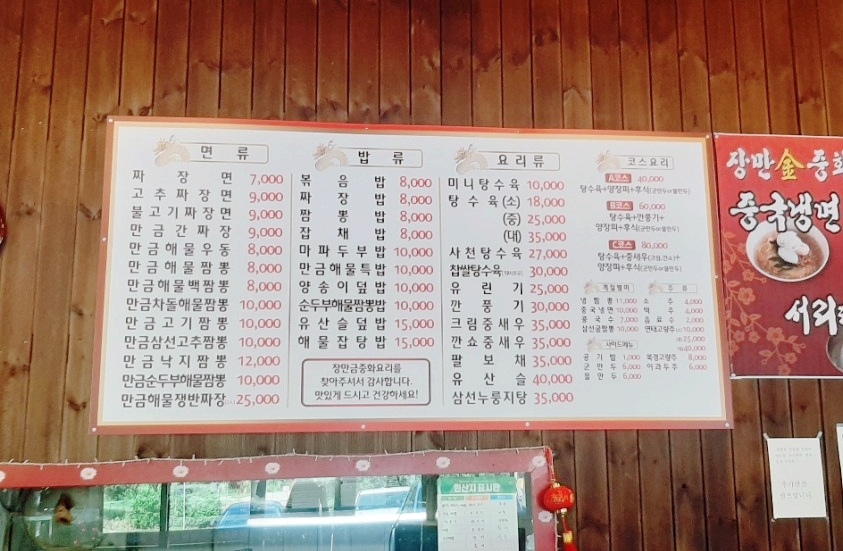 면 류
짜 장 면 7,000
고 추 짜 장 면 9,000
불고기짜장면 9,000
만 금 간 짜 장 9,000
만금해물우동 8,000
만금해물짬뽕 8,000
만금해물백짬뽕 8,000
만금차돌해물짬뽕 10,000
만금고기짬뽕 10,000
만금삼선고추짬뽕 10,000
만금낙지짬뽕 12,000
만금순두부해물짬뽕 10,000
만금해물쟁반짜장 25,000
밥 류
볶 음 밥 8,000
짜 장 밥 8,000
짬 뽕 밥 8,000
잡 채 밥 8,000
마파두부밥 10,000
만금해물특밥 10,000
양송이덮밥 10,000
순두부해물짬뽕밥 10,000
유산슬덮밥 15,000
해물잡탕밥 15,000
장만금중화요리를
찾아주셔서 감사합니다.
맛있게 드시고 건강하세요!
요리류
미니탕수육 10,000
탕 수 육 (소) 18,000
(중) 25,000
(대) 35,000
사천탕수육 27,000
찹쌀탕수육 30,000
유 린 기 25,000
깐 풍 기 30,000
크림중새우 35,000
깐쇼중새우 35,000
팔 보 채 35,000
유 산 슬 40,000
삼선누룽지탕 35,000
코스요리
A코스 40,000
탕수육+양장피+후식(군만두or물만두)
B코스 60,000
탕수육+깐풍기+
양장피+후식(군만두or물만두)
C코스 80,000
탕수육+중새우(크림,깐쇼)+
양장피+후식(군만두or물만두)
계절별미
냉 짬 뽕 11,000
중국냉면 10,000
콩 국 수 7,000
삼선굴짬뽕 10,000
사이드메뉴
공 기 밥 1,000
군 만 두 6,000
물 만 두 6,000
주 류
소 주 4,000
맥 주 4,000
음 료 수 2,000
연태고량주(소) 10,000
(중) 25,000
(대) 40,000
북경고량주 8,000
이과두주 6,000
장만金중화
중국냉면
서리
원산지 표시판